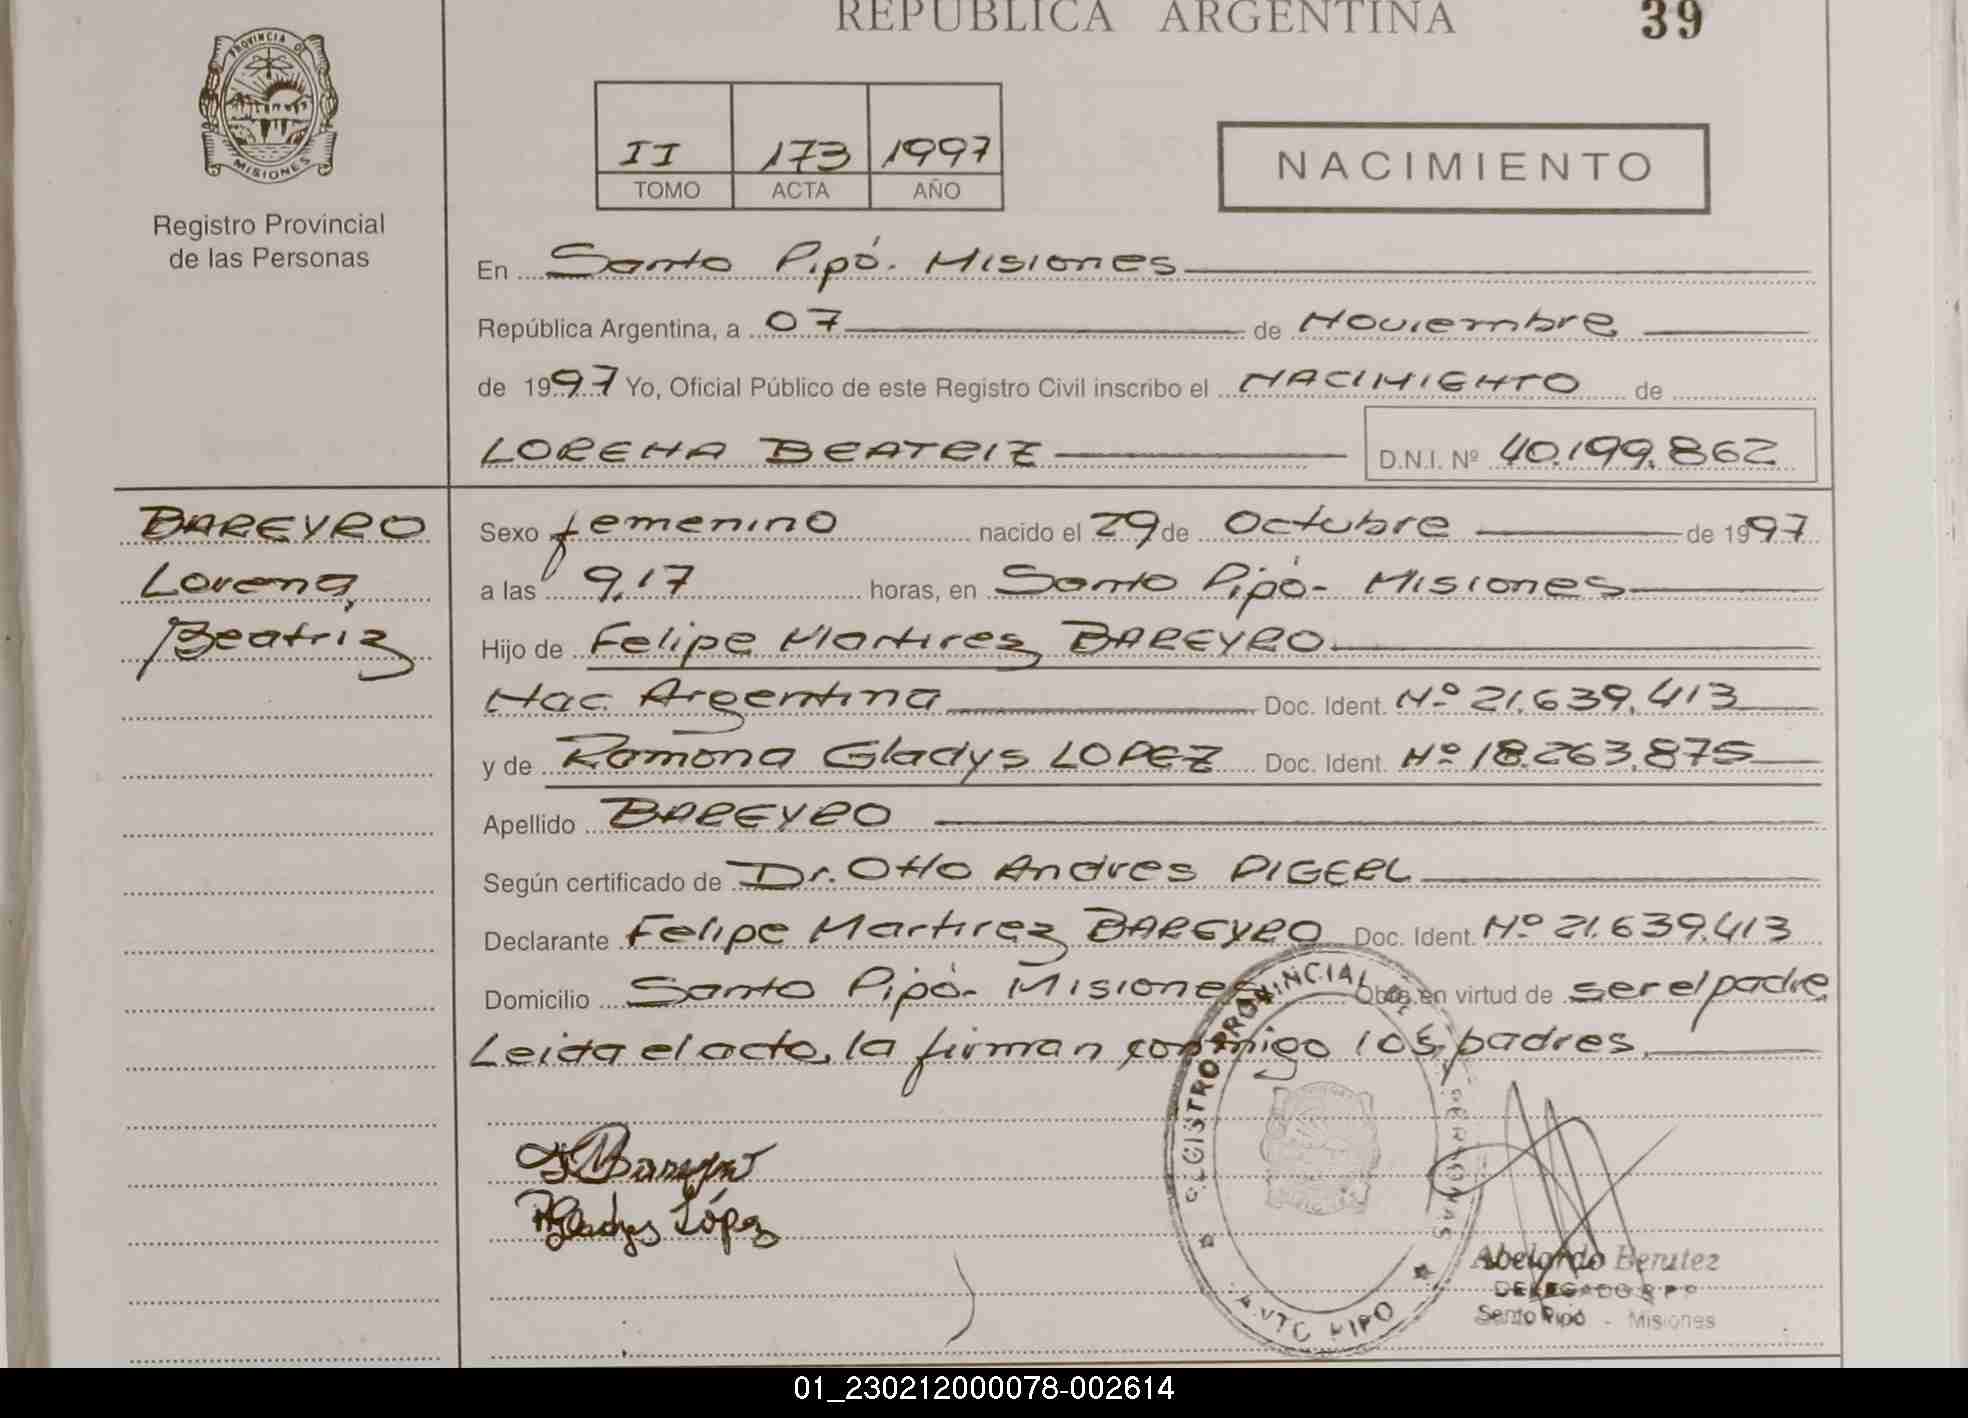 REPUBLICA ARGENTINA
39
PROVINCIA DE
MISIONES
Registro Provincial
de las Personas
II 173 1997
TOMO ACTA AÑO
NACIMIENTO
En Santo Pipó. Misiones
República Argentina, a 07 de Noviembre
de 1997 Yo, Oficial Público de este Registro Civil inscribo el NACIMIENTO de
LORENA BEATRIZ D.N.I. Nº 40.199.862
BAREYRO
Lorena,
Beatriz
Sexo femenino nacido el 29 de Octubre de 1997
a las 9,17 horas, en Santo Pipó- Misiones
Hijo de Felipe Martires BAREYRO
Nac. Argentina Doc. Ident. Nº 21.639.413
y de Ramona Gladys LOPEZ Doc. Ident. Nº 18.263.875
Apellido BAREYRO
Según certificado de Dr. Otto Andres PIGERL
Declarante Felipe Martirez BAREYRO Doc. Ident. Nº 21.639.413
Domicilio Santo Pipó- Misiones Obra en virtud de ser el padre
Leida el acta, la firman conmigo los padres.
REGISTRO PROVINCIAL DE PERSONAS
SANTO PIPO
Gladys López
Abelardo Benitez
DELEGADO R P P
Santo Pipó - Misiones
01_230212000078-002614